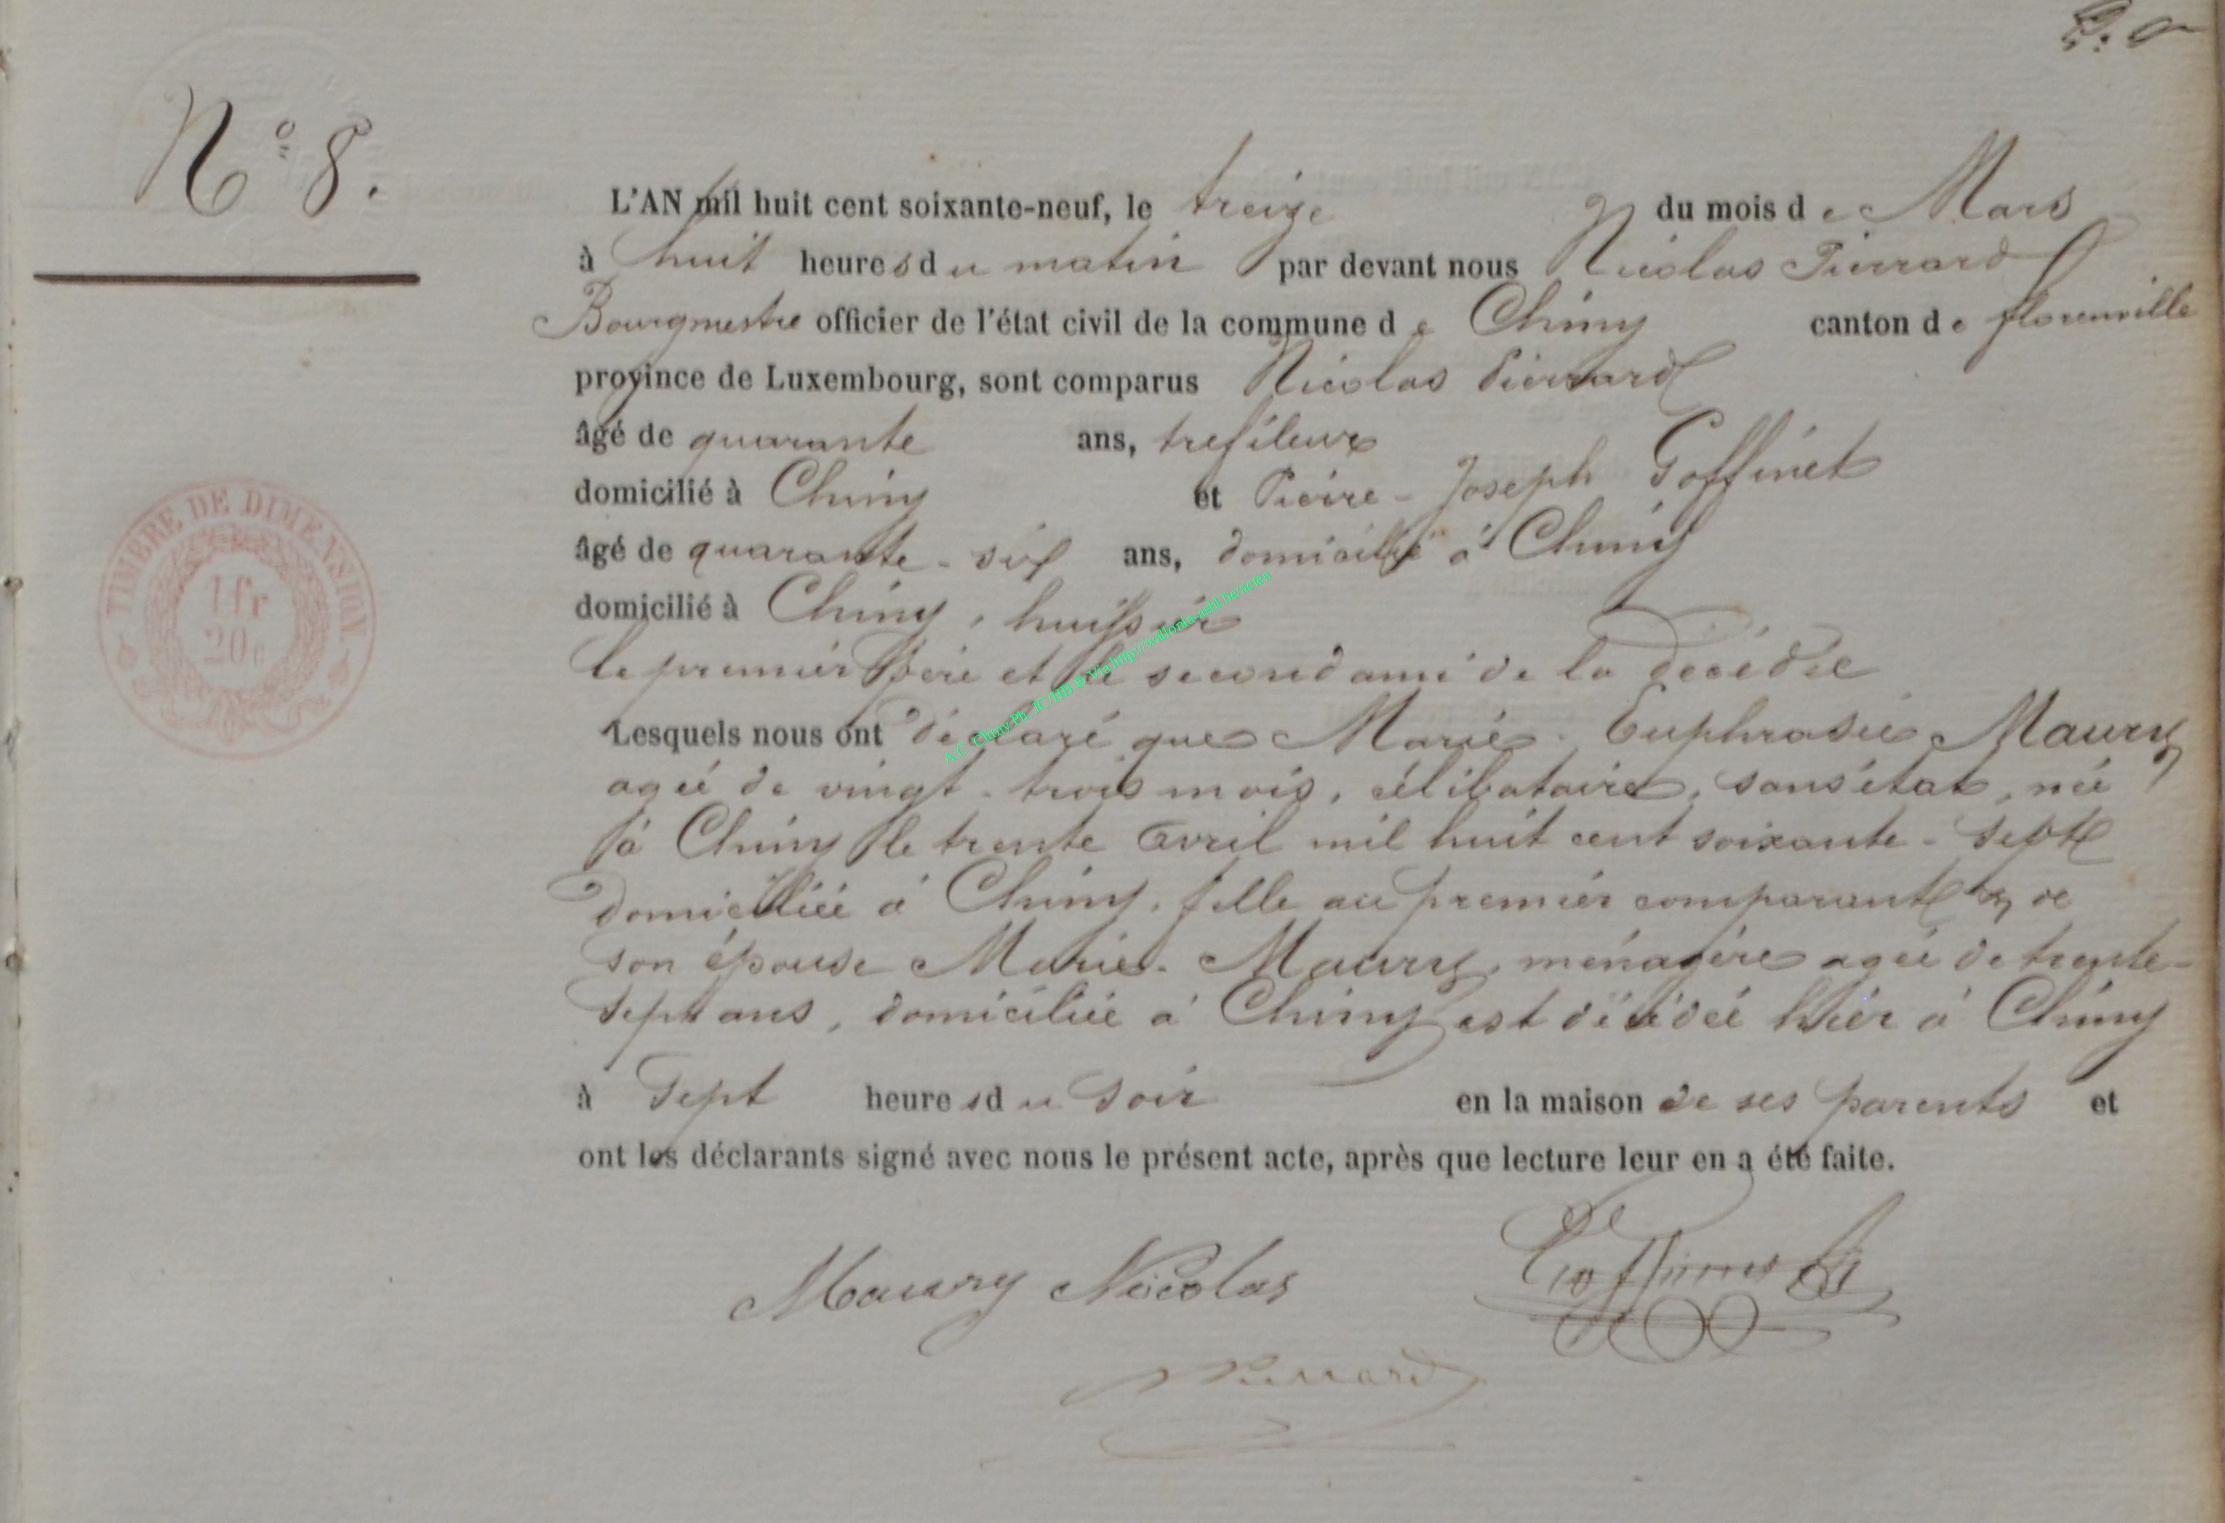 N° 8.
L'AN mil huit cent soixante-neuf, le treize du mois de Mars
à huit heures du matin par devant nous Nicolas Pierrard
Bourgmestre officier de l'état civil de la commune de Chiny canton de florenville
province de Luxembourg, sont comparus Nicolas Pierrard
âgé de quarante ans, trefileur
domicilié à Chiny et Pierre-Joseph Goffinet
âgé de quarante-six ans, domicilié à Chiny
domicilié à Chiny, huissier
le premier père et le second ami de la décédée
Lesquels nous ont déclaré que Marie-Euphrasie Maury
agée de vingt-trois mois, célibataire, sans état, née
à Chiny le trente avril mil huit cent soixante-sept
domiciliée à Chiny, fille au premier comparant & de
son épouse Marie Maury, ménagère agée de trente-
sept ans, domiciliée à Chiny est décédée hier à Chiny
à sept heures du soir en la maison de ses parents et
ont les déclarants signé avec nous le présent acte, après que lecture leur en a été faite.
Maury Nicolas
Pierrard
TIMBRE DE DIMENSION.
1 fr
20c
A.C. Chiny Ph. JC HB © Via http://wallonia-asbl.be/actes